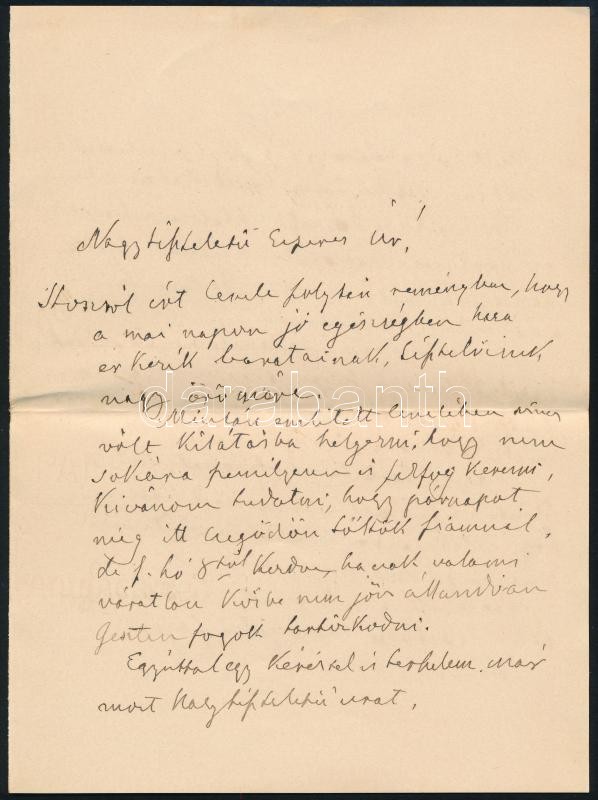 Nagytiszteletű Esperes Úr!
írt levele folytán reményben, hogy
a mai napon jó egészségben haza
érkezik barátainak, tisztelőinek
nagy örömére.
Miután említett levelében
volt kilátásba helyezni, hogy nem
sokára személyesen is keresni,
kívánom tudatni, hogy pár napot
még itt töltök fiamnál,
de f. hó kezdve, ha csak valami
váratlan közbe nem jön állandóan
Geszten fogok tartózkodni.
Egyúttal egy kéréssel is terhelem már
most Nagytiszteletű urat,
darabanth